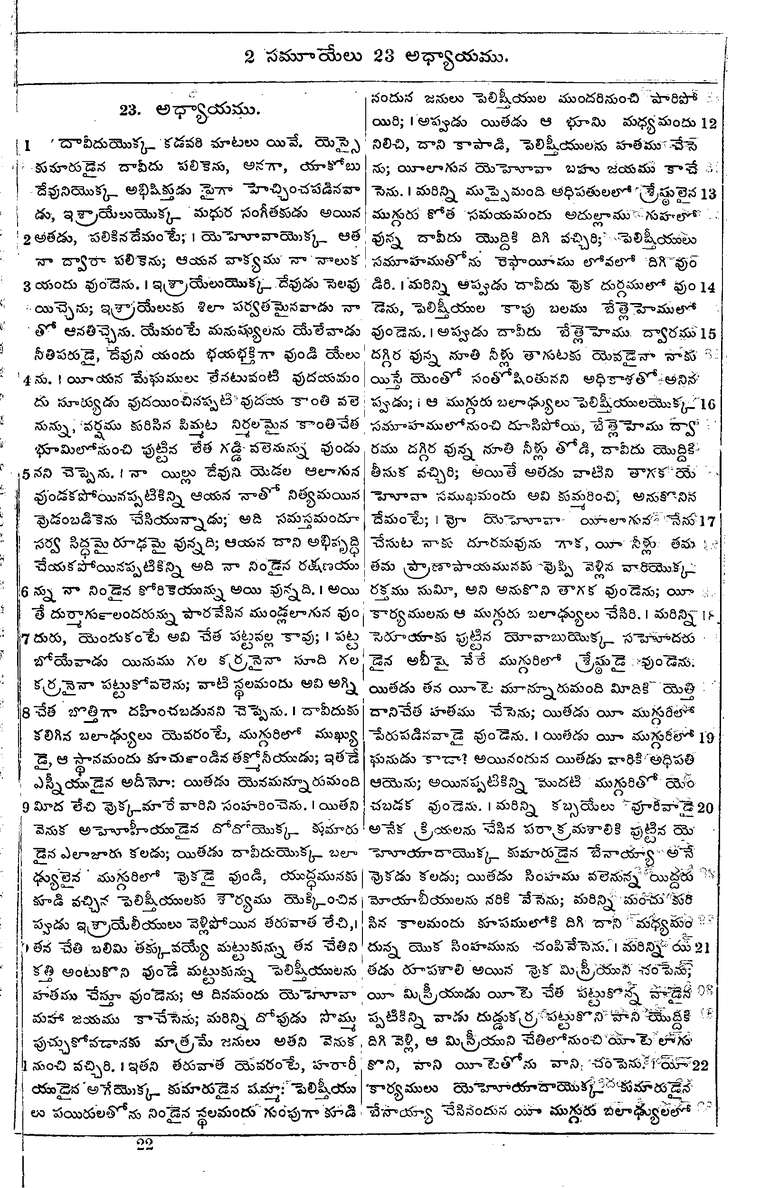 2 సమూయేలు 23 అధ్యాయము.
23. అధ్యాయము.
1 దావీదుయొక్క కడవరి మాటలు యివే. యెస్సై
కుమారుడైన దావీదు పలికెను, అనగా, యాకోబు
దేవునియొక్క అభిషిక్తుడు పైగా హెచ్చించపడినవా
డు, ఇశ్రాయేలుయొక్క మధుర సంగీతకుడు అయిన
2 అతడు, పలికినదేమంటే; । యెహోవాయొక్క ఆత్మ
నా ద్వారా పలికెను; ఆయన వాక్యము నా నాలుక
3 యందు వుండెను. । ఇశ్రాయేలుయొక్క దేవుడు సెలవు
యిచ్చెను; ఇశ్రాయేలుకు శిలా పర్వతమైనవాడు నా
తో ఆనతిచ్చెను. యేమంటే మనుష్యులను యేలేవాడు
నీతిపరుడై, దేవుని యందు భయభక్తిగా వుండి యేలు
4 ను. । యీయన మేఘములు లేనటువంటి వుదయమం
దు సూర్యుడు వుదయించినప్పటి వుదయ కాంతి వలె
నున్ను, వర్షము కురిసిన పిమ్మట నిర్మలమైన కాంతిచేత
భూమిలోనుంచి పుట్టిన లేత గడ్డి వలెనున్ను వుండు
5 నని చెప్పెను. । నా యిల్లు దేవుని యెడల ఆలాగున
వుండకపోయినప్పటికిన్ని ఆయన నాతో నిత్యమయిన
వుడంబడికెను చేసియున్నాడు; అది సమస్తమందూ
సర్వ సిద్ధమై రూఢమై వున్నది; ఆయన దాని అభివృద్ధి
చేయకపోయినప్పటికిన్ని అది నా నిండైన రక్షణయు
6 న్ను నా నిండైన కోరికెయున్ను అయి వున్నది. । అయి
తే దుర్మార్గులందరున్ను పారవేసిన ముండ్లలాగున వుం
7 దురు, యెందుకంటే అవి చేత పట్టవల్ల కావు; । పట్ట
బోయేవాడు యినుము గల కర్రనైనా సూది గల
కర్రనైనా పట్టుకోవలెను; వాటి స్థలమందు అవి అగ్ని
8 చేత బొత్తిగా దహించబడునని చెప్పెను. । దావీదుకు
కలిగిన బలాఢ్యులు యెవరంటే, ముగ్గురిలో ముఖ్యు
డై, ఆ స్థానమందు కూచుకుండిన తక్మోనీయుడు; ఇతడే
ఎస్నీయుడైన అదీనో: యితడు యెనమన్నూరుమంది
9 మీద లేచి వొక్కమారే వారిని సంహరించెను. । యితని
వెనుక అహోహీయుడైన దోదోయొక్క కుమారు
డైన ఎలాజారు కలడు; యితడు దావీదుయొక్క బలా
ఢ్యులైన ముగ్గురిలో వొకడై వుండి, యుద్ధమునకు
కూడి వచ్చిన పెలిష్తీయులకు శౌర్యము యెక్కించిన
ప్పుడు ఇశ్రాయేలీయులు వెళ్లిపోయిన తరువాత లేచి, ।
తన చేతి బలిమి తక్కువయ్యే మట్టుకున్ను తన చేతిని
కత్తి అంటుకొని వుండే మట్టుకున్ను పెలిష్తీయులను
హతము చేస్తూ వుండెను; ఆ దినమందు యెహోవా
మహా జయము కాచేసెను; మరిన్ని దోపుడు సొమ్ము
పుచ్చుకోవడానకు మాత్రమే జనులు అతని వెనుక
నుంచి వచ్చిరి. । ఇతని తరువాత యెవరంటే, హరారీ
యుడైన అగేయొక్క కుమారుడైన షమ్మా: పెలిష్తీయు
లు పయిరులతోను నిండైన స్థలమందు గుంపుగా కూడి
నందున జనులు పెలిష్తీయుల ముందరినుంచి పారిపో
యిరి; । అప్పుడు యితడు ఆ భూమి మధ్యమందు 12
నిలిచి, దాని కాపాడి, పెలిష్తీయులను హతము చేసె
ను; యీలాగున యెహోవా బహు జయము కాచే
సెను. । మరిన్ని ముప్పైమంది అధిపతులలో శ్రేష్ఠులైన 13
ముగ్గురు కోత సమయమందు అదుల్లాము గుహలో
వున్న దావీదు యొద్దికి దిగి వచ్చిరి; పెలిష్తీయులు
సమూహముతోను రెఫాయీము లోవలో దిగి వుం
డిరి. । మరిన్ని అప్పుడు దావీదు వొక దుర్గములో వుం 14
డెను, పెలిష్తీయుల కాపు బలము బేత్లెహేములో
వుండెను. । అప్పుడు దావీదు బేత్లెహేము ద్వారము 15
దగ్గిర వున్న నూతి నీళ్లు తాగుటకు యెవడైనా నాకు
యిస్తే యెంతో సంతోషింతునని అధికాశతో అనిన
ప్పుడు; । ఆ ముగ్గురు బలాఢ్యులు పెలిష్తీయులయొక్క 16
సమూహములోనుంచి దూసిపోయి, బేత్లెహేము ద్వా
రము దగ్గిర వున్న నూతి నీళ్లు తోడి, దావీదు యొద్దికి
తీసుక వచ్చిరి; అయితే అతడు వాటిని తాగక యె
హోవా సముఖమందు అవి కుమ్మరించి, అనుకొనిన
దేమంటే; । వో యెహోవా యీలాగున నేను 17
చేసుట నాకు దూరమవును గాక, యీ నీళ్లు తమ
తమ ప్రాణాపాయమునకు వొప్పి వెళ్లిన వారియొక్క
రక్తము సుమీ, అని అనుకొని తాగక వుండెను; యీ
కార్యములను ఆ ముగ్గురు బలాఢ్యులు చేసిరి. । మరిన్ని 18
సెరూయాకు పుట్టిన యోవాబుయొక్క సహోదరు
డైన అబీషై వేరే ముగ్గురిలో శ్రేష్ఠుడై వుండెను.
యితడు తన యీటె మూన్నూరుమంది మీదికి యెత్తి
దానిచేత హతము చేసెను; యితడు యీ ముగ్గురిలో
పేరుపడినవాడై వుండెను. । యితడు యీ ముగ్గురిలో 19
ఘనుడు కాడా? అయినందున యితడు వారికి అధిపతి
ఆయెను; అయినప్పటికిన్ని మొదటి ముగ్గురితో యెం
చబడక వుండెను. । మరిన్ని కబ్సయేలు వూరివాడై 20
అనేక క్రియలను చేసిన పరాక్రమశాలికి పుట్టిన యె
హోయాదాయొక్క కుమారుడైన బేనాయ్యా అనే
వొకడు కలడు; యితడు సింహము వలెనున్న యిద్దరు
మోయాబీయులను నరికి వేసెను; మరిన్ని మంచు కురి
సిన కాలమందు కూపములోకి దిగి దాని మధ్యమం
దున్న యొక సింహమును చంపివేసెను. । మరిన్ని యి 21
తడు రూపశాలి అయిన వొక మిస్రీయుని చంపెను;
యీ మిస్రీయుడు యీటె చేత పట్టుకొన్న వాడైన
ప్పటికిన్ని వాడు దుడ్డుకర్ర పట్టుకొని వాని యొద్దికి
దిగి వెళ్లి, ఆ మిస్రీయుని చేతిలోనుంచి యీటె లాగు
కొని, వాని యీటెతోను వాని చంపెను. । యీ 22
కార్యములు యెహోయాదాయొక్క కుమారుడైన
బేనాయ్యా చేసినందున యీ ముగ్గురు బలాఢ్యులలో
22